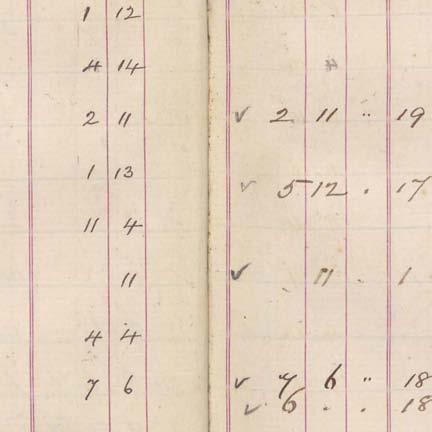 1 12
4 14
2 11
1 13
11 4
11
4 4
7 6
✓ 2 11 " 19
✓ 5 12 . 17
✓ 11 . 1
✓ 7 6 " 18
✓ 6 . . 18